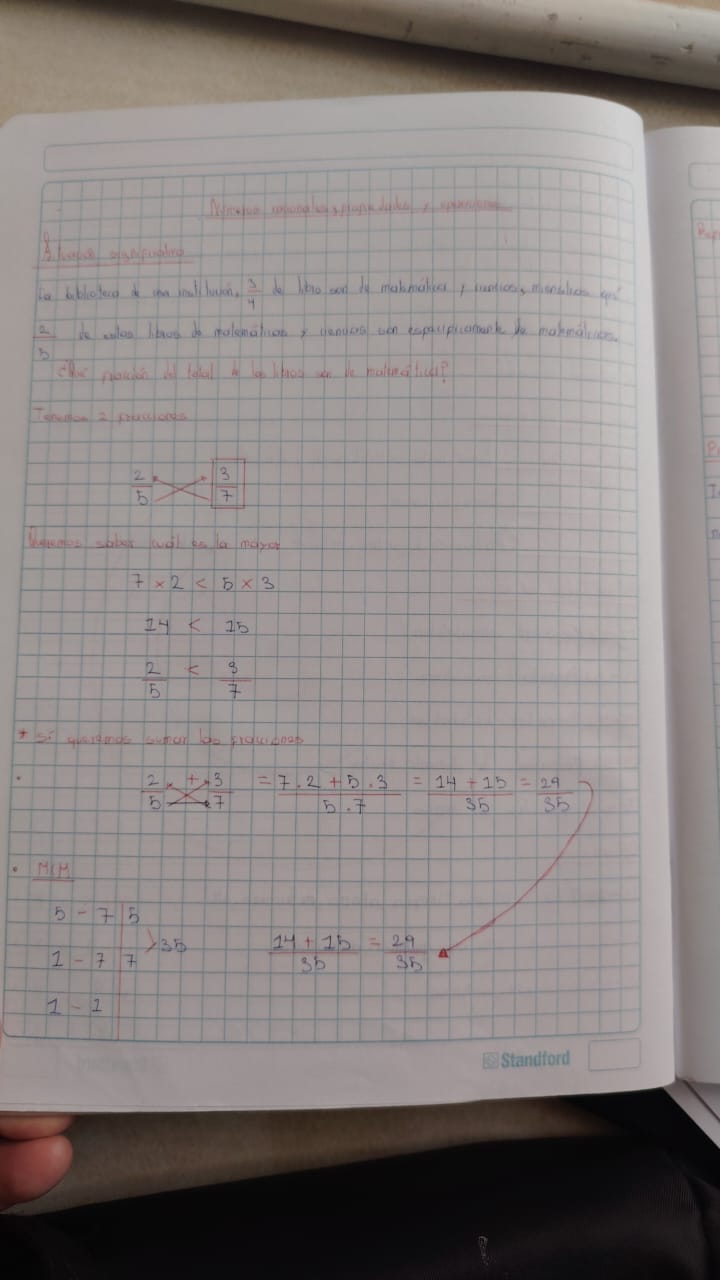 Números racionales, propiedades y operaciones
Situación significativa
La biblioteca de una institución, 3/4 de libro son de matemática y ciencias, mientras que
2/5 de estos libros de matemáticas y ciencias son especificamente de matemáticas.
¿Qué fracción del total de los libros son de matemática?
Tenemos 2 fracciones
2/5 3/7
Queremos saber cuál es la mayor
7 × 2 < 5 × 3
14 < 15
2/5 < 3/7
* Si queremos sumar las fracciones
• 2/5 + 3/7 = 7.2 + 5.3 / 5.7 = 14 + 15 / 35 = 29/35
• MCM
5 - 7 | 5
1 - 7 | 7 > 35 14 + 15 / 35 = 29/35
1 - 1
Standford